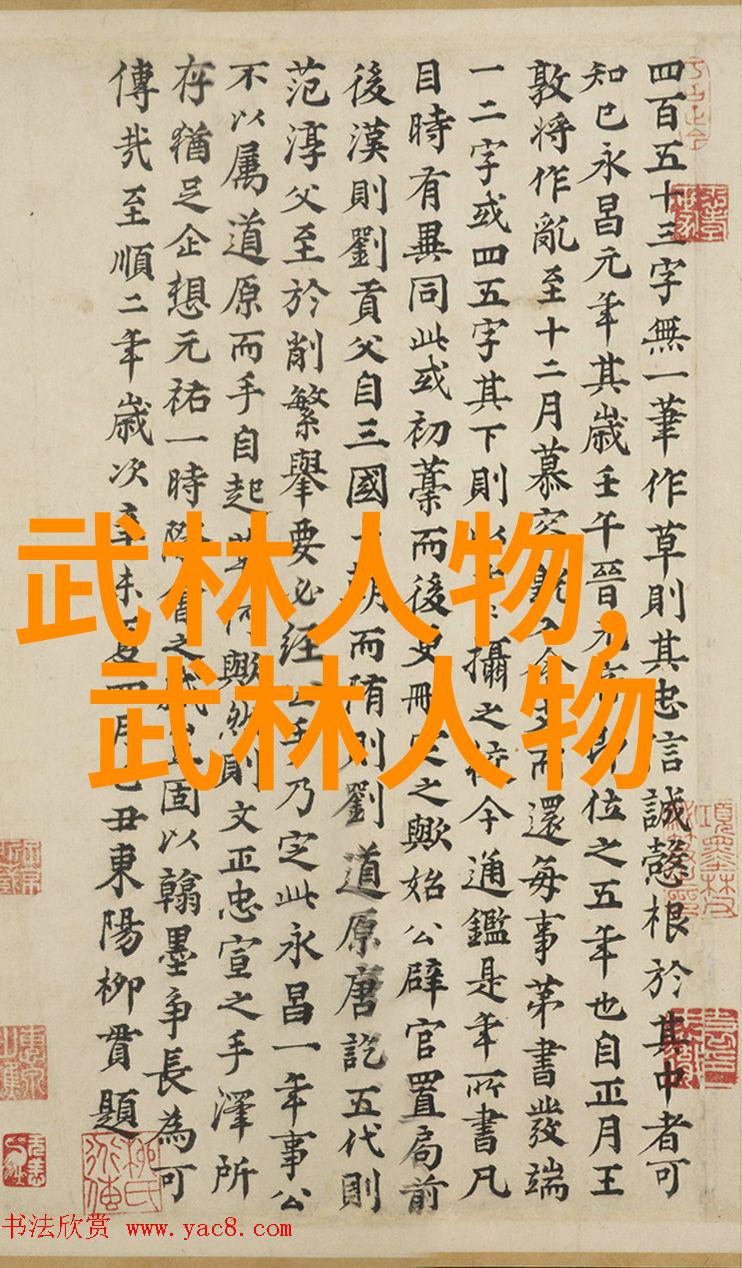 四百五十三字無一筆作草則其忠信誠慤根於其中者可
知已永昌元年其歲壬午晉元位之五年也自正月王
敦將作亂至十二月慕容入而還每事第書發端
一二字或四五字其下則以攝之校今通鑑是年所書凡
目時有異同此或初藁而後更刪定之歟始公辟官置局前
後漢則劉貢父自三國朝而隋則劉道原唐訖五代則
范淳父至於削繁舉要必經公手乃定此永昌一年事公
不以屬道原而手自起草何歟然則文正忠宣之手澤所
存猶足企想元祐一時際會之固以翰墨爭長為可
傳哉至順二年歲次辛未夏四月己丑東陽柳貫題
武林人物,
武林人物
书法欣赏 www.yac8.com